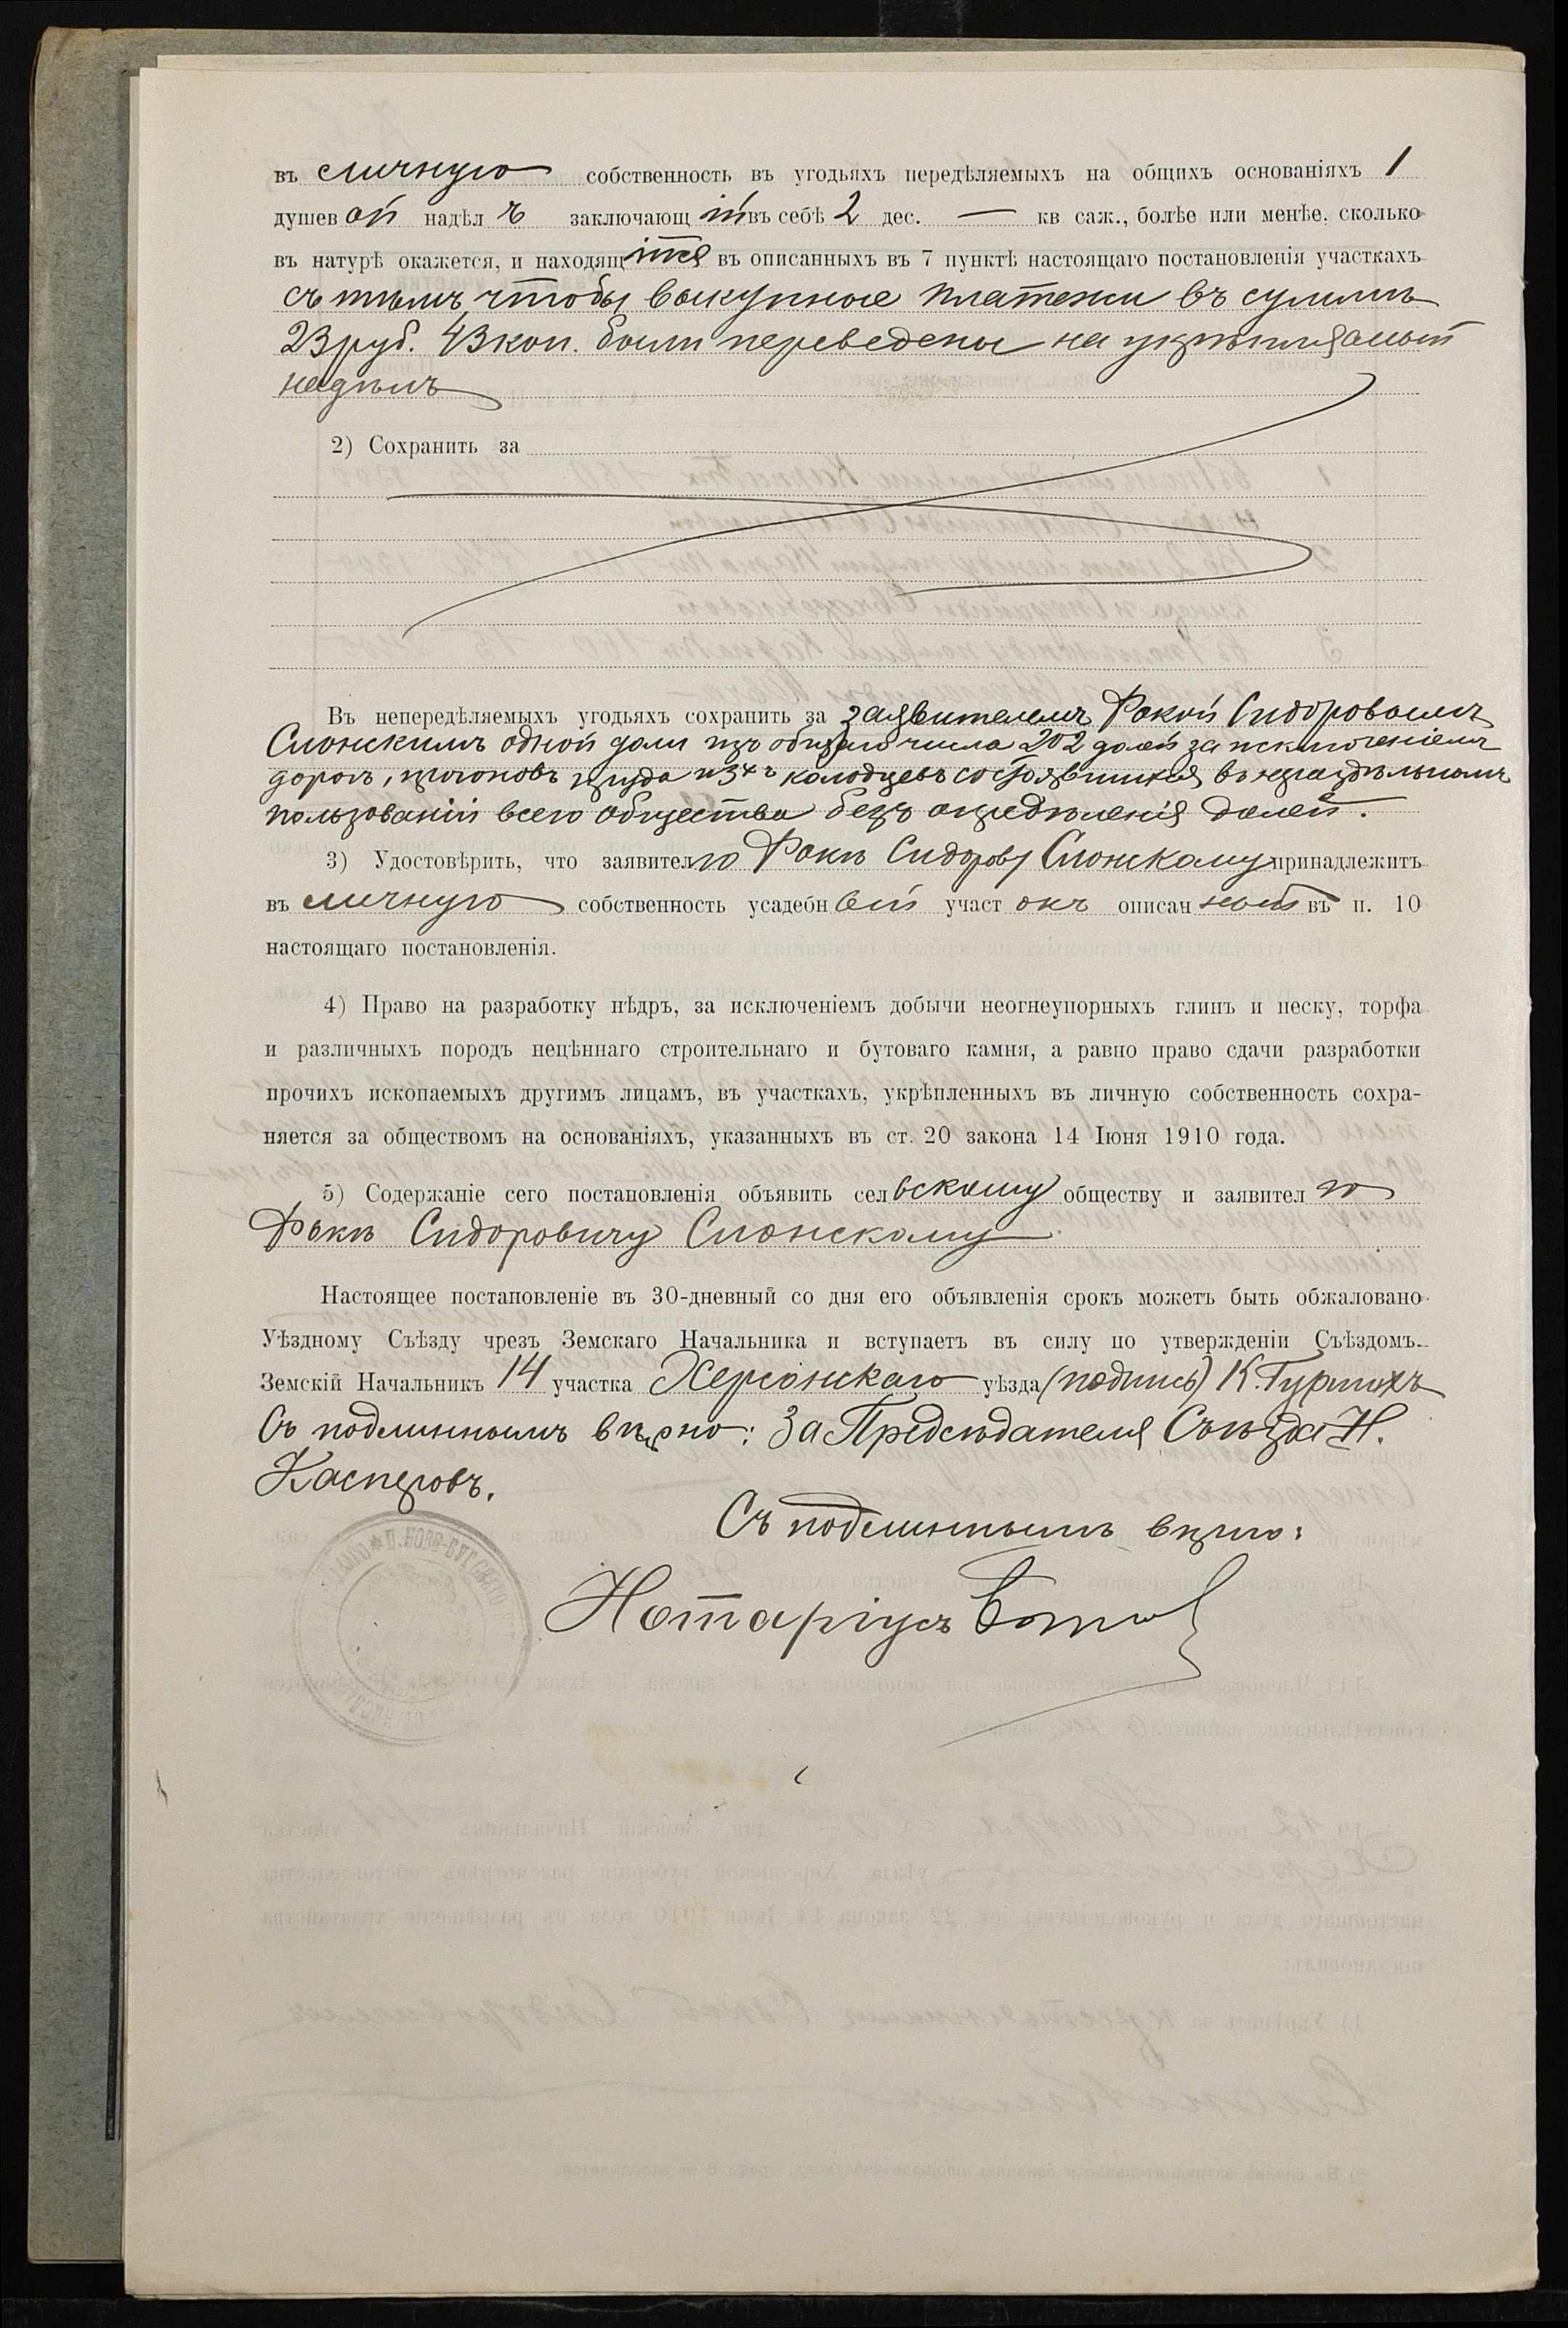 въ личную собственность въ угодьяхъ передѣляемыхъ на общихъ основаніяхъ 1
душевой надѣлъ заключающій въ себѣ 2 дес. — кв саж., болѣе или менѣе, сколько
въ натурѣ окажется, и находящійся въ описанныхъ въ 7 пунктѣ настоящаго постановленія участкахъ
съ тѣмъ, чтобы выкупные платежи въ суммѣ
23 руб. 43 коп. были переведены на укрѣпляемый
надѣлъ
2) Сохранить за
Въ непередѣляемыхъ угодьяхъ сохранить за заявителемъ Фокой Сидоровымъ
Слонскимъ одной доли изъ общаго числа 202 долей за исключеніемъ
дорогъ, прогоновъ пруда и 3хъ колодцевъ состоявшихся въ нераздѣльномъ
пользованіи всего общества безъ опредѣленія долей.
3) Удостовѣрить, что заявителю Фокѣ Сидорову Слонскому принадлежитъ
въ личную собственность усадебный участокъ описанный въ п. 10
настоящаго постановленія.
4) Право на разработку нѣдръ, за исключеніемъ добычи неогнеупорныхъ глинъ и песку, торфа
и различныхъ породъ нецѣннаго строительнаго и бутоваго камня, а равно право сдачи разработки
прочихъ ископаемыхъ другимъ лицамъ, въ участкахъ, укрѣпленныхъ въ личную собственность сохра-
няется за обществомъ на основаніяхъ, указанныхъ въ ст. 20 закона 14 Іюня 1910 года.
5) Содержаніе сего постановленія объявить сельскому обществу и заявителю
Фокѣ Сидоровичу Слонскому
Настоящее постановленіе въ 30-дневный со дня его объявленія срокъ можетъ быть обжаловано
Уѣздному Съѣзду чрезъ Земскаго Начальника и вступаетъ въ силу по утвержденіи Съѣздомъ.
Земскій Начальникъ 14 участка Херсонскаго уѣзда (подпись) К.
Съ подлиннымъ вѣрно: За Предсѣдателя Съѣзда Н.
Касперовъ.
Съ подлиннымъ вѣрно:
Нотаріусъ